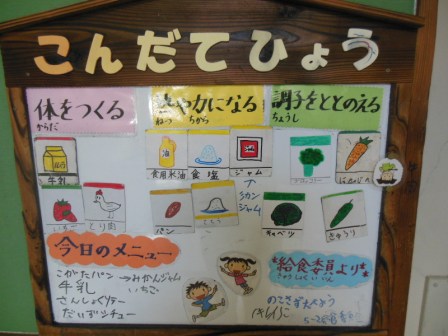 こんだてひょう
体をつくる
からだ
熱や力になる
ねつ ちから
調子をととのえる
ちょうし
牛乳
食用米油
食塩
ジャム
ブロッコリー
にんじん
ミカン
ジャム
いちご
とり肉
パン
キャベツ
きゅうり
今日のメニュー
こがたパン→みかんジャム
牛乳 いちご
さんしょくソテー
だいずシチュー
給食委員より
のこさず